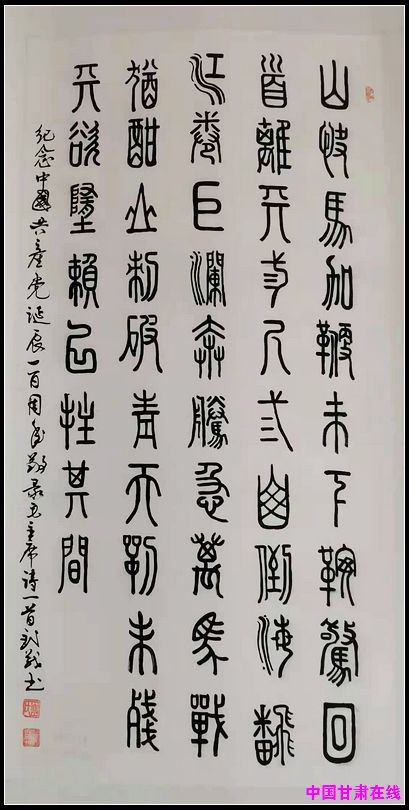 山快馬加鞭未下鞍驚回
首離天三尺三山倒海翻
江卷巨瀾奔騰急萬馬戰
猶酣山刺破青天鍔未殘
天欲墮賴以拄其間
纪念中國共產党诞辰一百周年敬录毛主席诗一首书
中国甘肃在线